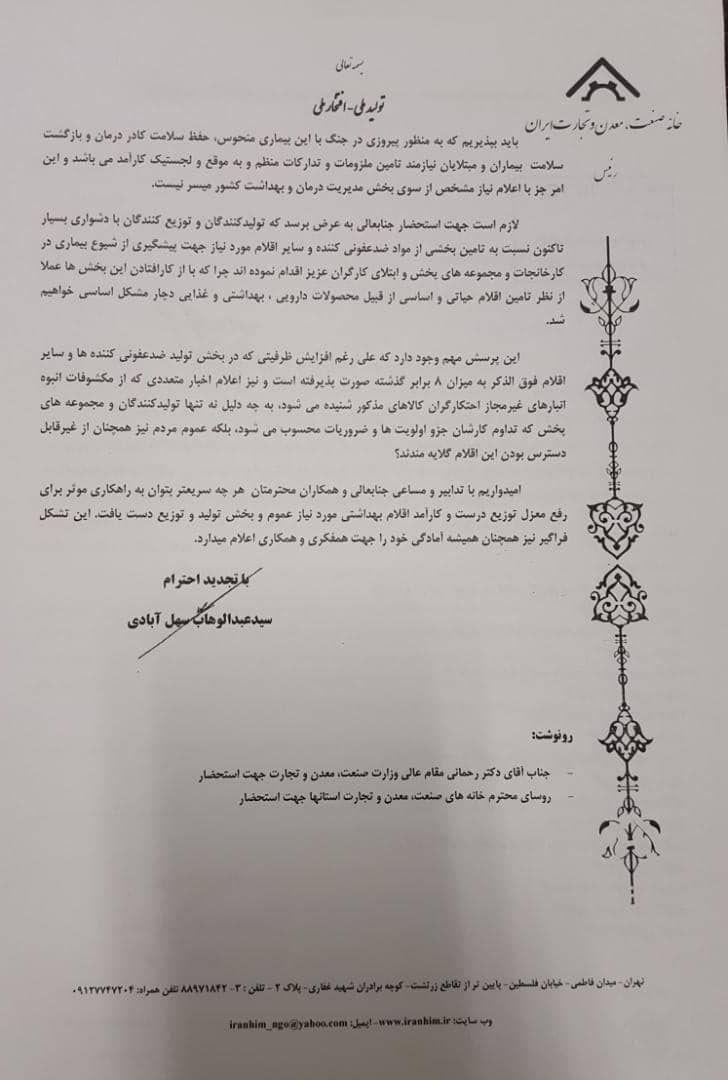 بسمه تعالی
تولید ملی - افتخار ملی
خانه صنعت، معدن و تجارت ایران
رئیس
باید بپذیریم که به منظور پیروزی در جنگ با این بیماری منحوس، حفظ سلامت کادر درمان و بازگشت
سلامت بیماران و مبتلایان نیازمند تامین ملزومات و تدارکات منظم و به موقع و لجستیک کارآمد می باشد و این
امر جز با اعلام نیاز مشخص از سوی بخش مدیریت درمان و بهداشت کشور میسر نیست.
لازم است جهت استحضار جنابعالی به عرض برسد که تولیدکنندگان و توزیع کنندگان با دشواری بسیار
تاکنون نسبت به تامین بخشی از مواد ضدعفونی کننده و سایر اقلام مورد نیاز جهت پیشگیری از شیوع بیماری در
کارخانجات و مجموعه های پخش و ابتلای کارگران عزیز اقدام نموده اند چرا که با از کارافتادن این بخش ها عملا
از نظر تامین اقلام حیاتی و اساسی از قبیل محصولات دارویی ، بهداشتی و غذایی دچار مشکل اساسی خواهیم
شد.
این پرسش مهم وجود دارد که علی رغم افزایش ظرفیتی که در بخش تولید ضدعفونی کننده ها و سایر
اقلام فوق الذکر به میزان ۸ برابر گذشته صورت پذیرفته است و نیز اعلام اخبار متعددی که از مکشوفات انبوه
انبارهای غیرمجاز احتکارگران کالاهای مذکور شنیده می شود، به چه دلیل نه تنها تولیدکنندگان و مجموعه های
پخش که تداوم کارشان جزو اولویت ها و ضروریات محسوب می شود، بلکه عموم مردم نیز همچنان از غیرقابل
دسترس بودن این اقلام گلایه مندند؟
امیدواریم با تدابیر و مساعی جنابعالی و همکاران محترمتان هر چه سریعتر بتوان به راهکاری موثر برای
رفع معزل توزیع درست و کارآمد اقلام بهداشتی مورد نیاز عموم و بخش تولید و توزیع دست یافت. این تشکل
فراگیر نیز همچنان همیشه آمادگی خود را جهت همفکری و همکاری اعلام میدارد.
با تجدید احترام
سیدعبدالوهاب سهل آبادی
رونوشت:
- جناب آقای دکتر رحمانی مقام عالی وزارت صنعت، معدن و تجارت جهت استحضار
- روسای محترم خانه های صنعت، معدن و تجارت استانها جهت استحضار
تهران - میدان فاطمی - خیابان فلسطین - پایین تر از تقاطع زرتشت - کوچه برادران شهید غفاری - پلاک ۲ - تلفن : ۳-۸۸۹۷۱۸۴۲ تلفن همراه: ۰۹۱۲۷۷۴۷۲۰۴
وب سایت: www.iranhim.ir- ایمیل: iranhim_ngo@yahoo.com